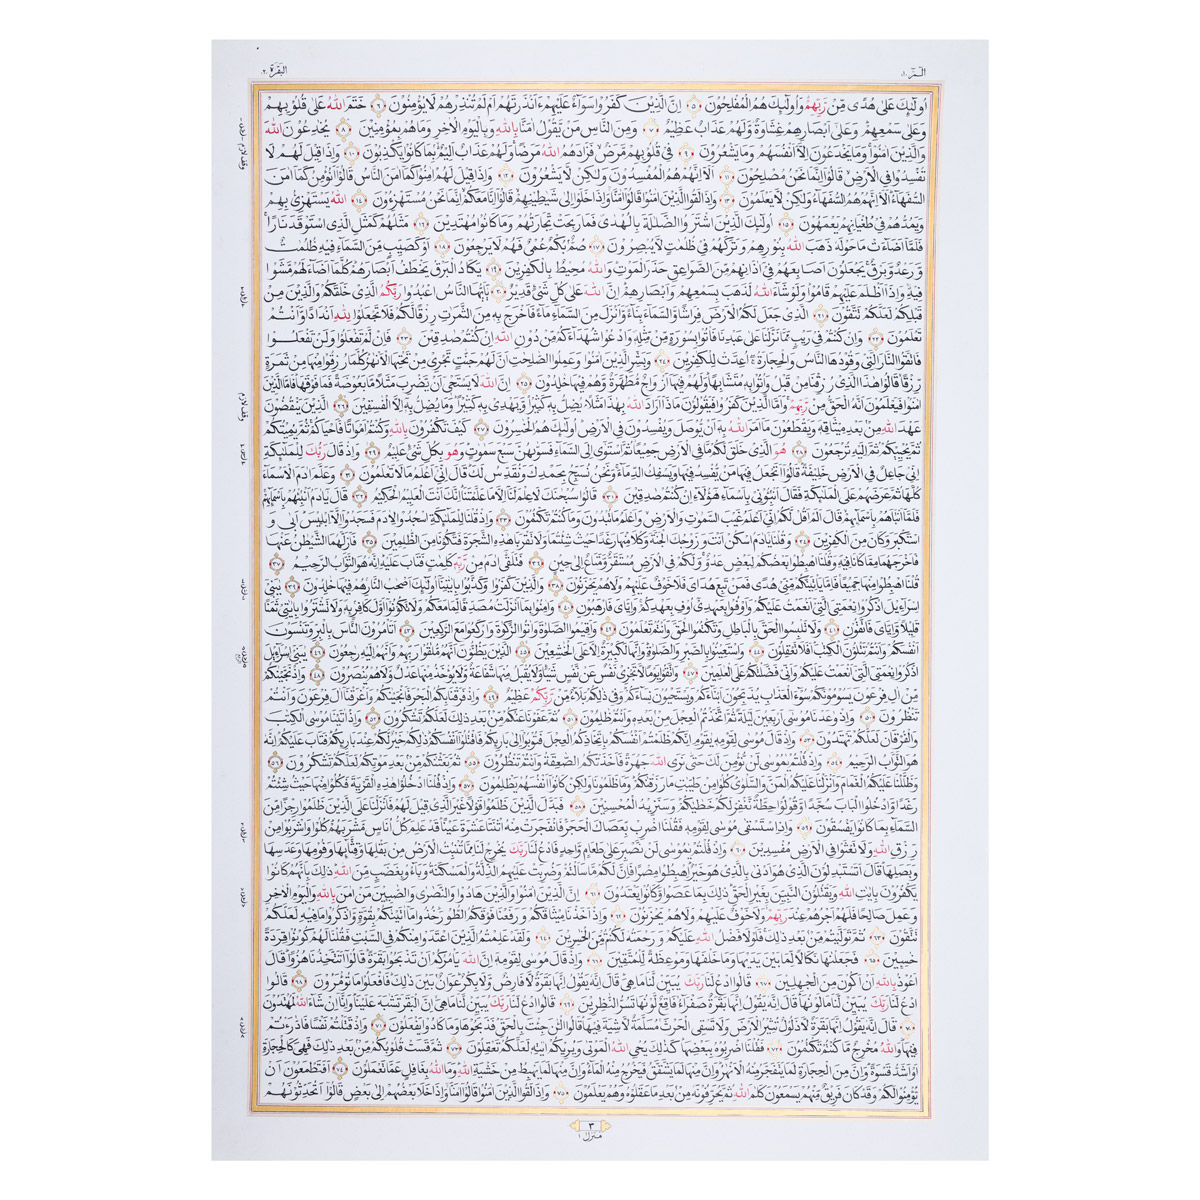 الٓمّٓ ١
البقرة ٢
اُولٰٓئِكَ عَلٰى هُدًى مِّنْ رَّبِّهِمْ وَاُولٰٓئِكَ هُمُ الْمُفْلِحُوْنَ ﴿٥﴾ اِنَّ الَّذِيْنَ كَفَرُوْا سَوَآءٌ عَلَيْهِمْ ءَاَنْذَرْتَهُمْ اَمْ لَمْ تُنْذِرْهُمْ لَا يُؤْمِنُوْنَ ﴿٦﴾ خَتَمَ اللّٰهُ عَلٰى قُلُوْبِهِمْ
وَعَلٰى سَمْعِهِمْ وَعَلٰٓى اَبْصَارِهِمْ غِشَاوَةٌ وَّلَهُمْ عَذَابٌ عَظِيْمٌ ﴿٧﴾ وَمِنَ النَّاسِ مَنْ يَّقُوْلُ اٰمَنَّا بِاللّٰهِ وَبِالْيَوْمِ الْاٰخِرِ وَمَا هُمْ بِمُؤْمِنِيْنَ ﴿٨﴾ يُخٰدِعُوْنَ اللّٰهَ
وَالَّذِيْنَ اٰمَنُوْا وَمَا يَخْدَعُوْنَ اِلَّآ اَنْفُسَهُمْ وَمَا يَشْعُرُوْنَ ﴿٩﴾ فِيْ قُلُوْبِهِمْ مَّرَضٌ فَزَادَهُمُ اللّٰهُ مَرَضًا وَلَهُمْ عَذَابٌ اَلِيْمٌ بِمَا كَانُوْا يَكْذِبُوْنَ ﴿١٠﴾ وَاِذَا قِيْلَ لَهُمْ لَا
تُفْسِدُوْا فِي الْاَرْضِ قَالُوْٓا اِنَّمَا نَحْنُ مُصْلِحُوْنَ ﴿١١﴾ اَلَآ اِنَّهُمْ هُمُ الْمُفْسِدُوْنَ وَلٰكِنْ لَّا يَشْعُرُوْنَ ﴿١٢﴾ وَاِذَا قِيْلَ لَهُمْ اٰمِنُوْا كَمَآ اٰمَنَ النَّاسُ قَالُوْٓا اَنُؤْمِنُ كَمَآ اٰمَنَ
السُّفَهَآءُ اَلَآ اِنَّهُمْ هُمُ السُّفَهَآءُ وَلٰكِنْ لَّا يَعْلَمُوْنَ ﴿١٣﴾ وَاِذَا لَقُوا الَّذِيْنَ اٰمَنُوْا قَالُوْٓا اٰمَنَّا وَاِذَا خَلَوْا اِلٰى شَيٰطِيْنِهِمْ قَالُوْٓا اِنَّا مَعَكُمْ اِنَّمَا نَحْنُ مُسْتَهْزِءُوْنَ ﴿١٤﴾ اَللّٰهُ يَسْتَهْزِئُ بِهِمْ
وَيَمُدُّهُمْ فِيْ طُغْيَانِهِمْ يَعْمَهُوْنَ ﴿١٥﴾ اُولٰٓئِكَ الَّذِيْنَ اشْتَرَوُا الضَّلٰلَةَ بِالْهُدٰى فَمَا رَبِحَتْ تِّجَارَتُهُمْ وَمَا كَانُوْا مُهْتَدِيْنَ ﴿١٦﴾ مَثَلُهُمْ كَمَثَلِ الَّذِي اسْتَوْقَدَ نَارًا
فَلَمَّآ اَضَآءَتْ مَا حَوْلَهٗ ذَهَبَ اللّٰهُ بِنُوْرِهِمْ وَتَرَكَهُمْ فِيْ ظُلُمٰتٍ لَّا يُبْصِرُوْنَ ﴿١٧﴾ صُمٌّ بُكْمٌ عُمْيٌ فَهُمْ لَا يَرْجِعُوْنَ ﴿١٨﴾ اَوْ كَصَيِّبٍ مِّنَ السَّمَآءِ فِيْهِ ظُلُمٰتٌ
وَّرَعْدٌ وَّبَرْقٌ يَجْعَلُوْنَ اَصَابِعَهُمْ فِيْٓ اٰذَانِهِمْ مِّنَ الصَّوَاعِقِ حَذَرَ الْمَوْتِ وَاللّٰهُ مُحِيْطٌ بِالْكٰفِرِيْنَ ﴿١٩﴾ يَكَادُ الْبَرْقُ يَخْطَفُ اَبْصَارَهُمْ كُلَّمَآ اَضَآءَ لَهُمْ مَّشَوْا
فِيْهِ وَاِذَآ اَظْلَمَ عَلَيْهِمْ قَامُوْا وَلَوْ شَآءَ اللّٰهُ لَذَهَبَ بِسَمْعِهِمْ وَاَبْصَارِهِمْ اِنَّ اللّٰهَ عَلٰى كُلِّ شَيْءٍ قَدِيْرٌ ﴿٢٠﴾ يٰٓاَيُّهَا النَّاسُ اعْبُدُوْا رَبَّكُمُ الَّذِيْ خَلَقَكُمْ وَالَّذِيْنَ مِنْ
قَبْلِكُمْ لَعَلَّكُمْ تَتَّقُوْنَ ﴿٢١﴾ الَّذِيْ جَعَلَ لَكُمُ الْاَرْضَ فِرَاشًا وَّالسَّمَآءَ بِنَآءً وَّاَنْزَلَ مِنَ السَّمَآءِ مَآءً فَاَخْرَجَ بِهٖ مِنَ الثَّمَرٰتِ رِزْقًا لَّكُمْ فَلَا تَجْعَلُوْا لِلّٰهِ اَنْدَادًا وَّاَنْتُمْ
تَعْلَمُوْنَ ﴿٢٢﴾ وَاِنْ كُنْتُمْ فِيْ رَيْبٍ مِّمَّا نَزَّلْنَا عَلٰى عَبْدِنَا فَأْتُوْا بِسُوْرَةٍ مِّنْ مِّثْلِهٖ وَادْعُوْا شُهَدَآءَكُمْ مِّنْ دُوْنِ اللّٰهِ اِنْ كُنْتُمْ صٰدِقِيْنَ ﴿٢٣﴾ فَاِنْ لَّمْ تَفْعَلُوْا وَلَنْ تَفْعَلُوْا
فَاتَّقُوا النَّارَ الَّتِيْ وَقُوْدُهَا النَّاسُ وَالْحِجَارَةُ اُعِدَّتْ لِلْكٰفِرِيْنَ ﴿٢٤﴾ وَبَشِّرِ الَّذِيْنَ اٰمَنُوْا وَعَمِلُوا الصّٰلِحٰتِ اَنَّ لَهُمْ جَنّٰتٍ تَجْرِيْ مِنْ تَحْتِهَا الْاَنْهٰرُ كُلَّمَا رُزِقُوْا مِنْهَا مِنْ ثَمَرَةٍ
رِّزْقًا قَالُوْا هٰذَا الَّذِيْ رُزِقْنَا مِنْ قَبْلُ وَاُتُوْا بِهٖ مُتَشَابِهًا وَلَهُمْ فِيْهَآ اَزْوَاجٌ مُّطَهَّرَةٌ وَّهُمْ فِيْهَا خٰلِدُوْنَ ﴿٢٥﴾ اِنَّ اللّٰهَ لَا يَسْتَحْيٖٓ اَنْ يَّضْرِبَ مَثَلًا مَّا بَعُوْضَةً فَمَا فَوْقَهَا فَاَمَّا الَّذِيْنَ
اٰمَنُوْا فَيَعْلَمُوْنَ اَنَّهُ الْحَقُّ مِنْ رَّبِّهِمْ وَاَمَّا الَّذِيْنَ كَفَرُوْا فَيَقُوْلُوْنَ مَاذَآ اَرَادَ اللّٰهُ بِهٰذَا مَثَلًا يُضِلُّ بِهٖ كَثِيْرًا وَّيَهْدِيْ بِهٖ كَثِيْرًا وَمَا يُضِلُّ بِهٖٓ اِلَّا الْفٰسِقِيْنَ ﴿٢٦﴾ الَّذِيْنَ يَنْقُضُوْنَ
عَهْدَ اللّٰهِ مِنْ بَعْدِ مِيْثَاقِهٖ وَيَقْطَعُوْنَ مَآ اَمَرَ اللّٰهُ بِهٖٓ اَنْ يُّوْصَلَ وَيُفْسِدُوْنَ فِي الْاَرْضِ اُولٰٓئِكَ هُمُ الْخٰسِرُوْنَ ﴿٢٧﴾ كَيْفَ تَكْفُرُوْنَ بِاللّٰهِ وَكُنْتُمْ اَمْوَاتًا فَاَحْيَاكُمْ ثُمَّ يُمِيْتُكُمْ
ثُمَّ يُحْيِيْكُمْ ثُمَّ اِلَيْهِ تُرْجَعُوْنَ ﴿٢٨﴾ هُوَ الَّذِيْ خَلَقَ لَكُمْ مَّا فِي الْاَرْضِ جَمِيْعًا ثُمَّ اسْتَوٰٓى اِلَى السَّمَآءِ فَسَوّٰىهُنَّ سَبْعَ سَمٰوٰتٍ وَهُوَ بِكُلِّ شَيْءٍ عَلِيْمٌ ﴿٢٩﴾ وَاِذْ قَالَ رَبُّكَ لِلْمَلٰٓئِكَةِ
اِنِّيْ جَاعِلٌ فِي الْاَرْضِ خَلِيْفَةً قَالُوْٓا اَتَجْعَلُ فِيْهَا مَنْ يُّفْسِدُ فِيْهَا وَيَسْفِكُ الدِّمَآءَ وَنَحْنُ نُسَبِّحُ بِحَمْدِكَ وَنُقَدِّسُ لَكَ قَالَ اِنِّيْٓ اَعْلَمُ مَا لَا تَعْلَمُوْنَ ﴿٣٠﴾ وَعَلَّمَ اٰدَمَ الْاَسْمَآءَ
كُلَّهَا ثُمَّ عَرَضَهُمْ عَلَى الْمَلٰٓئِكَةِ فَقَالَ اَنْبِـُٔوْنِيْ بِاَسْمَآءِ هٰٓؤُلَآءِ اِنْ كُنْتُمْ صٰدِقِيْنَ ﴿٣١﴾ قَالُوْا سُبْحٰنَكَ لَا عِلْمَ لَنَآ اِلَّا مَا عَلَّمْتَنَا اِنَّكَ اَنْتَ الْعَلِيْمُ الْحَكِيْمُ ﴿٣٢﴾ قَالَ يٰٓاٰدَمُ اَنْبِئْهُمْ بِاَسْمَآئِهِمْ
فَلَمَّآ اَنْبَاَهُمْ بِاَسْمَآئِهِمْ قَالَ اَلَمْ اَقُلْ لَّكُمْ اِنِّيْٓ اَعْلَمُ غَيْبَ السَّمٰوٰتِ وَالْاَرْضِ وَاَعْلَمُ مَا تُبْدُوْنَ وَمَا كُنْتُمْ تَكْتُمُوْنَ ﴿٣٣﴾ وَاِذْ قُلْنَا لِلْمَلٰٓئِكَةِ اسْجُدُوْا لِاٰدَمَ فَسَجَدُوْٓا اِلَّآ اِبْلِيْسَ اَبٰى وَ
اسْتَكْبَرَ وَكَانَ مِنَ الْكٰفِرِيْنَ ﴿٣٤﴾ وَقُلْنَا يٰٓاٰدَمُ اسْكُنْ اَنْتَ وَزَوْجُكَ الْجَنَّةَ وَكُلَا مِنْهَا رَغَدًا حَيْثُ شِئْتُمَا وَلَا تَقْرَبَا هٰذِهِ الشَّجَرَةَ فَتَكُوْنَا مِنَ الظّٰلِمِيْنَ ﴿٣٥﴾ فَاَزَلَّهُمَا الشَّيْطٰنُ عَنْهَا
فَاَخْرَجَهُمَا مِمَّا كَانَا فِيْهِ وَقُلْنَا اهْبِطُوْا بَعْضُكُمْ لِبَعْضٍ عَدُوٌّ وَلَكُمْ فِي الْاَرْضِ مُسْتَقَرٌّ وَّمَتَاعٌ اِلٰى حِيْنٍ ﴿٣٦﴾ فَتَلَقّٰٓى اٰدَمُ مِنْ رَّبِّهٖ كَلِمٰتٍ فَتَابَ عَلَيْهِ اِنَّهٗ هُوَ التَّوَّابُ الرَّحِيْمُ ﴿٣٧﴾
قُلْنَا اهْبِطُوْا مِنْهَا جَمِيْعًا فَاِمَّا يَأْتِيَنَّكُمْ مِّنِّيْ هُدًى فَمَنْ تَبِعَ هُدَايَ فَلَا خَوْفٌ عَلَيْهِمْ وَلَا هُمْ يَحْزَنُوْنَ ﴿٣٨﴾ وَالَّذِيْنَ كَفَرُوْا وَكَذَّبُوْا بِاٰيٰتِنَآ اُولٰٓئِكَ اَصْحٰبُ النَّارِ هُمْ فِيْهَا خٰلِدُوْنَ ﴿٣٩﴾ يٰبَنِيْٓ
اِسْرَآءِيْلَ اذْكُرُوْا نِعْمَتِيَ الَّتِيْٓ اَنْعَمْتُ عَلَيْكُمْ وَاَوْفُوْا بِعَهْدِيْٓ اُوْفِ بِعَهْدِكُمْ وَاِيَّايَ فَارْهَبُوْنِ ﴿٤٠﴾ وَاٰمِنُوْا بِمَآ اَنْزَلْتُ مُصَدِّقًا لِّمَا مَعَكُمْ وَلَا تَكُوْنُوْٓا اَوَّلَ كَافِرٍ بِهٖ وَلَا تَشْتَرُوْا بِاٰيٰتِيْ ثَمَنًا
قَلِيْلًا وَّاِيَّايَ فَاتَّقُوْنِ ﴿٤١﴾ وَلَا تَلْبِسُوا الْحَقَّ بِالْبَاطِلِ وَتَكْتُمُوا الْحَقَّ وَاَنْتُمْ تَعْلَمُوْنَ ﴿٤٢﴾ وَاَقِيْمُوا الصَّلٰوةَ وَاٰتُوا الزَّكٰوةَ وَارْكَعُوْا مَعَ الرّٰكِعِيْنَ ﴿٤٣﴾ اَتَأْمُرُوْنَ النَّاسَ بِالْبِرِّ وَتَنْسَوْنَ
اَنْفُسَكُمْ وَاَنْتُمْ تَتْلُوْنَ الْكِتٰبَ اَفَلَا تَعْقِلُوْنَ ﴿٤٤﴾ وَاسْتَعِيْنُوْا بِالصَّبْرِ وَالصَّلٰوةِ وَاِنَّهَا لَكَبِيْرَةٌ اِلَّا عَلَى الْخٰشِعِيْنَ ﴿٤٥﴾ الَّذِيْنَ يَظُنُّوْنَ اَنَّهُمْ مُّلٰقُوْا رَبِّهِمْ وَاَنَّهُمْ اِلَيْهِ رٰجِعُوْنَ ﴿٤٦﴾ يٰبَنِيْٓ اِسْرَآءِيْلَ
اذْكُرُوْا نِعْمَتِيَ الَّتِيْٓ اَنْعَمْتُ عَلَيْكُمْ وَاَنِّيْ فَضَّلْتُكُمْ عَلَى الْعٰلَمِيْنَ ﴿٤٧﴾ وَاتَّقُوْا يَوْمًا لَّا تَجْزِيْ نَفْسٌ عَنْ نَّفْسٍ شَيْـًٔا وَّلَا يُقْبَلُ مِنْهَا شَفَاعَةٌ وَّلَا يُؤْخَذُ مِنْهَا عَدْلٌ وَّلَا هُمْ يُنْصَرُوْنَ ﴿٤٨﴾ وَاِذْ نَجَّيْنٰكُمْ
مِّنْ اٰلِ فِرْعَوْنَ يَسُوْمُوْنَكُمْ سُوْٓءَ الْعَذَابِ يُذَبِّحُوْنَ اَبْنَآءَكُمْ وَيَسْتَحْيُوْنَ نِسَآءَكُمْ وَفِيْ ذٰلِكُمْ بَلَآءٌ مِّنْ رَّبِّكُمْ عَظِيْمٌ ﴿٤٩﴾ وَاِذْ فَرَقْنَا بِكُمُ الْبَحْرَ فَاَنْجَيْنٰكُمْ وَاَغْرَقْنَآ اٰلَ فِرْعَوْنَ وَاَنْتُمْ
تَنْظُرُوْنَ ﴿٥٠﴾ وَاِذْ وٰعَدْنَا مُوْسٰٓى اَرْبَعِيْنَ لَيْلَةً ثُمَّ اتَّخَذْتُمُ الْعِجْلَ مِنْ بَعْدِهٖ وَاَنْتُمْ ظٰلِمُوْنَ ﴿٥١﴾ ثُمَّ عَفَوْنَا عَنْكُمْ مِّنْ بَعْدِ ذٰلِكَ لَعَلَّكُمْ تَشْكُرُوْنَ ﴿٥٢﴾ وَاِذْ اٰتَيْنَا مُوْسَى الْكِتٰبَ
وَالْفُرْقَانَ لَعَلَّكُمْ تَهْتَدُوْنَ ﴿٥٣﴾ وَاِذْ قَالَ مُوْسٰى لِقَوْمِهٖ يٰقَوْمِ اِنَّكُمْ ظَلَمْتُمْ اَنْفُسَكُمْ بِاتِّخَاذِكُمُ الْعِجْلَ فَتُوْبُوْٓا اِلٰى بَارِئِكُمْ فَاقْتُلُوْٓا اَنْفُسَكُمْ ذٰلِكُمْ خَيْرٌ لَّكُمْ عِنْدَ بَارِئِكُمْ فَتَابَ عَلَيْكُمْ اِنَّهٗ
هُوَ التَّوَّابُ الرَّحِيْمُ ﴿٥٤﴾ وَاِذْ قُلْتُمْ يٰمُوْسٰى لَنْ نُّؤْمِنَ لَكَ حَتّٰى نَرَى اللّٰهَ جَهْرَةً فَاَخَذَتْكُمُ الصّٰعِقَةُ وَاَنْتُمْ تَنْظُرُوْنَ ﴿٥٥﴾ ثُمَّ بَعَثْنٰكُمْ مِّنْ بَعْدِ مَوْتِكُمْ لَعَلَّكُمْ تَشْكُرُوْنَ ﴿٥٦﴾
وَظَلَّلْنَا عَلَيْكُمُ الْغَمَامَ وَاَنْزَلْنَا عَلَيْكُمُ الْمَنَّ وَالسَّلْوٰى كُلُوْا مِنْ طَيِّبٰتِ مَا رَزَقْنٰكُمْ وَمَا ظَلَمُوْنَا وَلٰكِنْ كَانُوْٓا اَنْفُسَهُمْ يَظْلِمُوْنَ ﴿٥٧﴾ وَاِذْ قُلْنَا ادْخُلُوْا هٰذِهِ الْقَرْيَةَ فَكُلُوْا مِنْهَا حَيْثُ شِئْتُمْ
رَغَدًا وَّادْخُلُوا الْبَابَ سُجَّدًا وَّقُوْلُوْا حِطَّةٌ نَّغْفِرْ لَكُمْ خَطٰيٰكُمْ وَسَنَزِيْدُ الْمُحْسِنِيْنَ ﴿٥٨﴾ فَبَدَّلَ الَّذِيْنَ ظَلَمُوْا قَوْلًا غَيْرَ الَّذِيْ قِيْلَ لَهُمْ فَاَنْزَلْنَا عَلَى الَّذِيْنَ ظَلَمُوْا رِجْزًا مِّنَ
السَّمَآءِ بِمَا كَانُوْا يَفْسُقُوْنَ ﴿٥٩﴾ وَاِذِ اسْتَسْقٰى مُوْسٰى لِقَوْمِهٖ فَقُلْنَا اضْرِبْ بِّعَصَاكَ الْحَجَرَ فَانْفَجَرَتْ مِنْهُ اثْنَتَا عَشْرَةَ عَيْنًا قَدْ عَلِمَ كُلُّ اُنَاسٍ مَّشْرَبَهُمْ كُلُوْا وَاشْرَبُوْا مِنْ
رِّزْقِ اللّٰهِ وَلَا تَعْثَوْا فِي الْاَرْضِ مُفْسِدِيْنَ ﴿٦٠﴾ وَاِذْ قُلْتُمْ يٰمُوْسٰى لَنْ نَّصْبِرَ عَلٰى طَعَامٍ وَّاحِدٍ فَادْعُ لَنَا رَبَّكَ يُخْرِجْ لَنَا مِمَّا تُنْبِتُ الْاَرْضُ مِنْ بَقْلِهَا وَقِثَّآئِهَا وَفُوْمِهَا وَعَدَسِهَا
وَبَصَلِهَا قَالَ اَتَسْتَبْدِلُوْنَ الَّذِيْ هُوَ اَدْنٰى بِالَّذِيْ هُوَ خَيْرٌ اِهْبِطُوْا مِصْرًا فَاِنَّ لَكُمْ مَّا سَاَلْتُمْ وَضُرِبَتْ عَلَيْهِمُ الذِّلَّةُ وَالْمَسْكَنَةُ وَبَآءُوْ بِغَضَبٍ مِّنَ اللّٰهِ ذٰلِكَ بِاَنَّهُمْ كَانُوْا
يَكْفُرُوْنَ بِاٰيٰتِ اللّٰهِ وَيَقْتُلُوْنَ النَّبِيّٖنَ بِغَيْرِ الْحَقِّ ذٰلِكَ بِمَا عَصَوْا وَّكَانُوْا يَعْتَدُوْنَ ﴿٦١﴾ اِنَّ الَّذِيْنَ اٰمَنُوْا وَالَّذِيْنَ هَادُوْا وَالنَّصٰرٰى وَالصّٰبِـِٕيْنَ مَنْ اٰمَنَ بِاللّٰهِ وَالْيَوْمِ الْاٰخِرِ
وَعَمِلَ صَالِحًا فَلَهُمْ اَجْرُهُمْ عِنْدَ رَبِّهِمْ وَلَا خَوْفٌ عَلَيْهِمْ وَلَا هُمْ يَحْزَنُوْنَ ﴿٦٢﴾ وَاِذْ اَخَذْنَا مِيْثَاقَكُمْ وَرَفَعْنَا فَوْقَكُمُ الطُّوْرَ خُذُوْا مَآ اٰتَيْنٰكُمْ بِقُوَّةٍ وَّاذْكُرُوْا مَا فِيْهِ لَعَلَّكُمْ
تَتَّقُوْنَ ﴿٦٣﴾ ثُمَّ تَوَلَّيْتُمْ مِّنْ بَعْدِ ذٰلِكَ فَلَوْلَا فَضْلُ اللّٰهِ عَلَيْكُمْ وَرَحْمَتُهٗ لَكُنْتُمْ مِّنَ الْخٰسِرِيْنَ ﴿٦٤﴾ وَلَقَدْ عَلِمْتُمُ الَّذِيْنَ اعْتَدَوْا مِنْكُمْ فِي السَّبْتِ فَقُلْنَا لَهُمْ كُوْنُوْا قِرَدَةً
خٰسِـِٕيْنَ ﴿٦٥﴾ فَجَعَلْنٰهَا نَكَالًا لِّمَا بَيْنَ يَدَيْهَا وَمَا خَلْفَهَا وَمَوْعِظَةً لِّلْمُتَّقِيْنَ ﴿٦٦﴾ وَاِذْ قَالَ مُوْسٰى لِقَوْمِهٖٓ اِنَّ اللّٰهَ يَأْمُرُكُمْ اَنْ تَذْبَحُوْا بَقَرَةً قَالُوْٓا اَتَتَّخِذُنَا هُزُوًا قَالَ
اَعُوْذُ بِاللّٰهِ اَنْ اَكُوْنَ مِنَ الْجٰهِلِيْنَ ﴿٦٧﴾ قَالُوا ادْعُ لَنَا رَبَّكَ يُبَيِّنْ لَّنَا مَا هِيَ قَالَ اِنَّهٗ يَقُوْلُ اِنَّهَا بَقَرَةٌ لَّا فَارِضٌ وَّلَا بِكْرٌ عَوَانٌ بَيْنَ ذٰلِكَ فَافْعَلُوْا مَا تُؤْمَرُوْنَ ﴿٦٨﴾ قَالُوا
ادْعُ لَنَا رَبَّكَ يُبَيِّنْ لَّنَا مَا لَوْنُهَا قَالَ اِنَّهٗ يَقُوْلُ اِنَّهَا بَقَرَةٌ صَفْرَآءُ فَاقِعٌ لَّوْنُهَا تَسُرُّ النّٰظِرِيْنَ ﴿٦٩﴾ قَالُوا ادْعُ لَنَا رَبَّكَ يُبَيِّنْ لَّنَا مَا هِيَ اِنَّ الْبَقَرَ تَشٰبَهَ عَلَيْنَا وَاِنَّآ اِنْ شَآءَ اللّٰهُ لَمُهْتَدُوْنَ
﴿٧٠﴾ قَالَ اِنَّهٗ يَقُوْلُ اِنَّهَا بَقَرَةٌ لَّا ذَلُوْلٌ تُثِيْرُ الْاَرْضَ وَلَا تَسْقِي الْحَرْثَ مُسَلَّمَةٌ لَّا شِيَةَ فِيْهَا قَالُوا الْـٰٔنَ جِئْتَ بِالْحَقِّ فَذَبَحُوْهَا وَمَا كَادُوْا يَفْعَلُوْنَ ﴿٧١﴾ وَاِذْ قَتَلْتُمْ نَفْسًا فَادّٰرَءْتُمْ
فِيْهَا وَاللّٰهُ مُخْرِجٌ مَّا كُنْتُمْ تَكْتُمُوْنَ ﴿٧٢﴾ فَقُلْنَا اضْرِبُوْهُ بِبَعْضِهَا كَذٰلِكَ يُحْيِ اللّٰهُ الْمَوْتٰى وَيُرِيْكُمْ اٰيٰتِهٖ لَعَلَّكُمْ تَعْقِلُوْنَ ﴿٧٣﴾ ثُمَّ قَسَتْ قُلُوْبُكُمْ مِّنْ بَعْدِ ذٰلِكَ فَهِيَ كَالْحِجَارَةِ
اَوْ اَشَدُّ قَسْوَةً وَاِنَّ مِنَ الْحِجَارَةِ لَمَا يَتَفَجَّرُ مِنْهُ الْاَنْهٰرُ وَاِنَّ مِنْهَا لَمَا يَشَّقَّقُ فَيَخْرُجُ مِنْهُ الْمَآءُ وَاِنَّ مِنْهَا لَمَا يَهْبِطُ مِنْ خَشْيَةِ اللّٰهِ وَمَا اللّٰهُ بِغَافِلٍ عَمَّا تَعْمَلُوْنَ ﴿٧٤﴾ اَفَتَطْمَعُوْنَ اَنْ
يُّؤْمِنُوْا لَكُمْ وَقَدْ كَانَ فَرِيْقٌ مِّنْهُمْ يَسْمَعُوْنَ كَلٰمَ اللّٰهِ ثُمَّ يُحَرِّفُوْنَهٗ مِنْ بَعْدِ مَا عَقَلُوْهُ وَهُمْ يَعْلَمُوْنَ ﴿٧٥﴾ وَاِذَا لَقُوا الَّذِيْنَ اٰمَنُوْا قَالُوْٓا اٰمَنَّا وَاِذَا خَلَا بَعْضُهُمْ اِلٰى بَعْضٍ قَالُوْٓا اَتُحَدِّثُوْنَهُمْ
٣
منزل ١
وقف لازم
وقف لازم